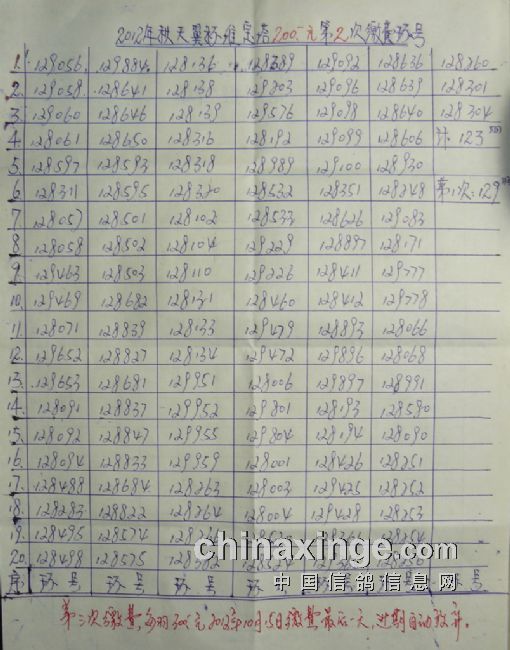 2012年秋天翼环維宾塔200.元第2次缴費环号
1. 129056. 129884. 128136 128389 129092 128636 128260
2. 129058. 128641 128138 129803 129096 128639 128301
3. 129060 128646 128139 129576 129098 128640 128304
4. 128061 128650 128316 128192 129099 128606 计 123羽
5. 128597 128593 128318 128989 129100 128930
6. 128311 128595 128320 128532 128351 128248 第1次:129羽
7. 128057 128501 128102 128533 128626 129083
8. 128058 128502 128104 129229 128897 128171
9. 129463 128503 128110 129226 128411 129777
10. 129469 128682 128131 128460 128412 129778
11. 128071 128839 128133 129479 128893 128066
12. 129652 128827 128134 129472 129896 128068
13. 129653 128681 129951 128006 129897 128991
14. 128091 128837 129952 129801 128193 128590
15. 128092 128847 129955 129804 128194 128090
16. 128094 128833 129959 128001 128426 128251
17. 128488 128684 128263 128003 129425 128252
18. 128283 128822 128364 128004 129428 128253
19. 128495 128574
20. 128498 128575
序 环号 环号 环号 环号 环号 环号 环号
chinaxinge.com
中国信鸽信息网
第三次缴費,每羽300.元,2012年10月15日缴費最后一天,过期自动放弃。